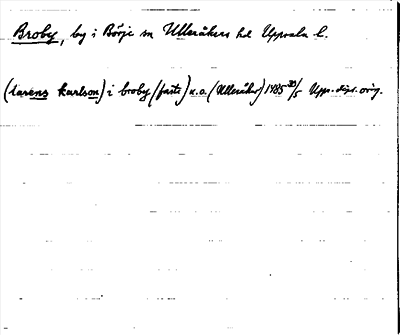 Broby, by i Börje sn Ulleråkers hd Uppsala l.
(larens karlson) i broby (faste) u.a. (Ulleråker) 1485 30/5 Upps. dipl. orig.